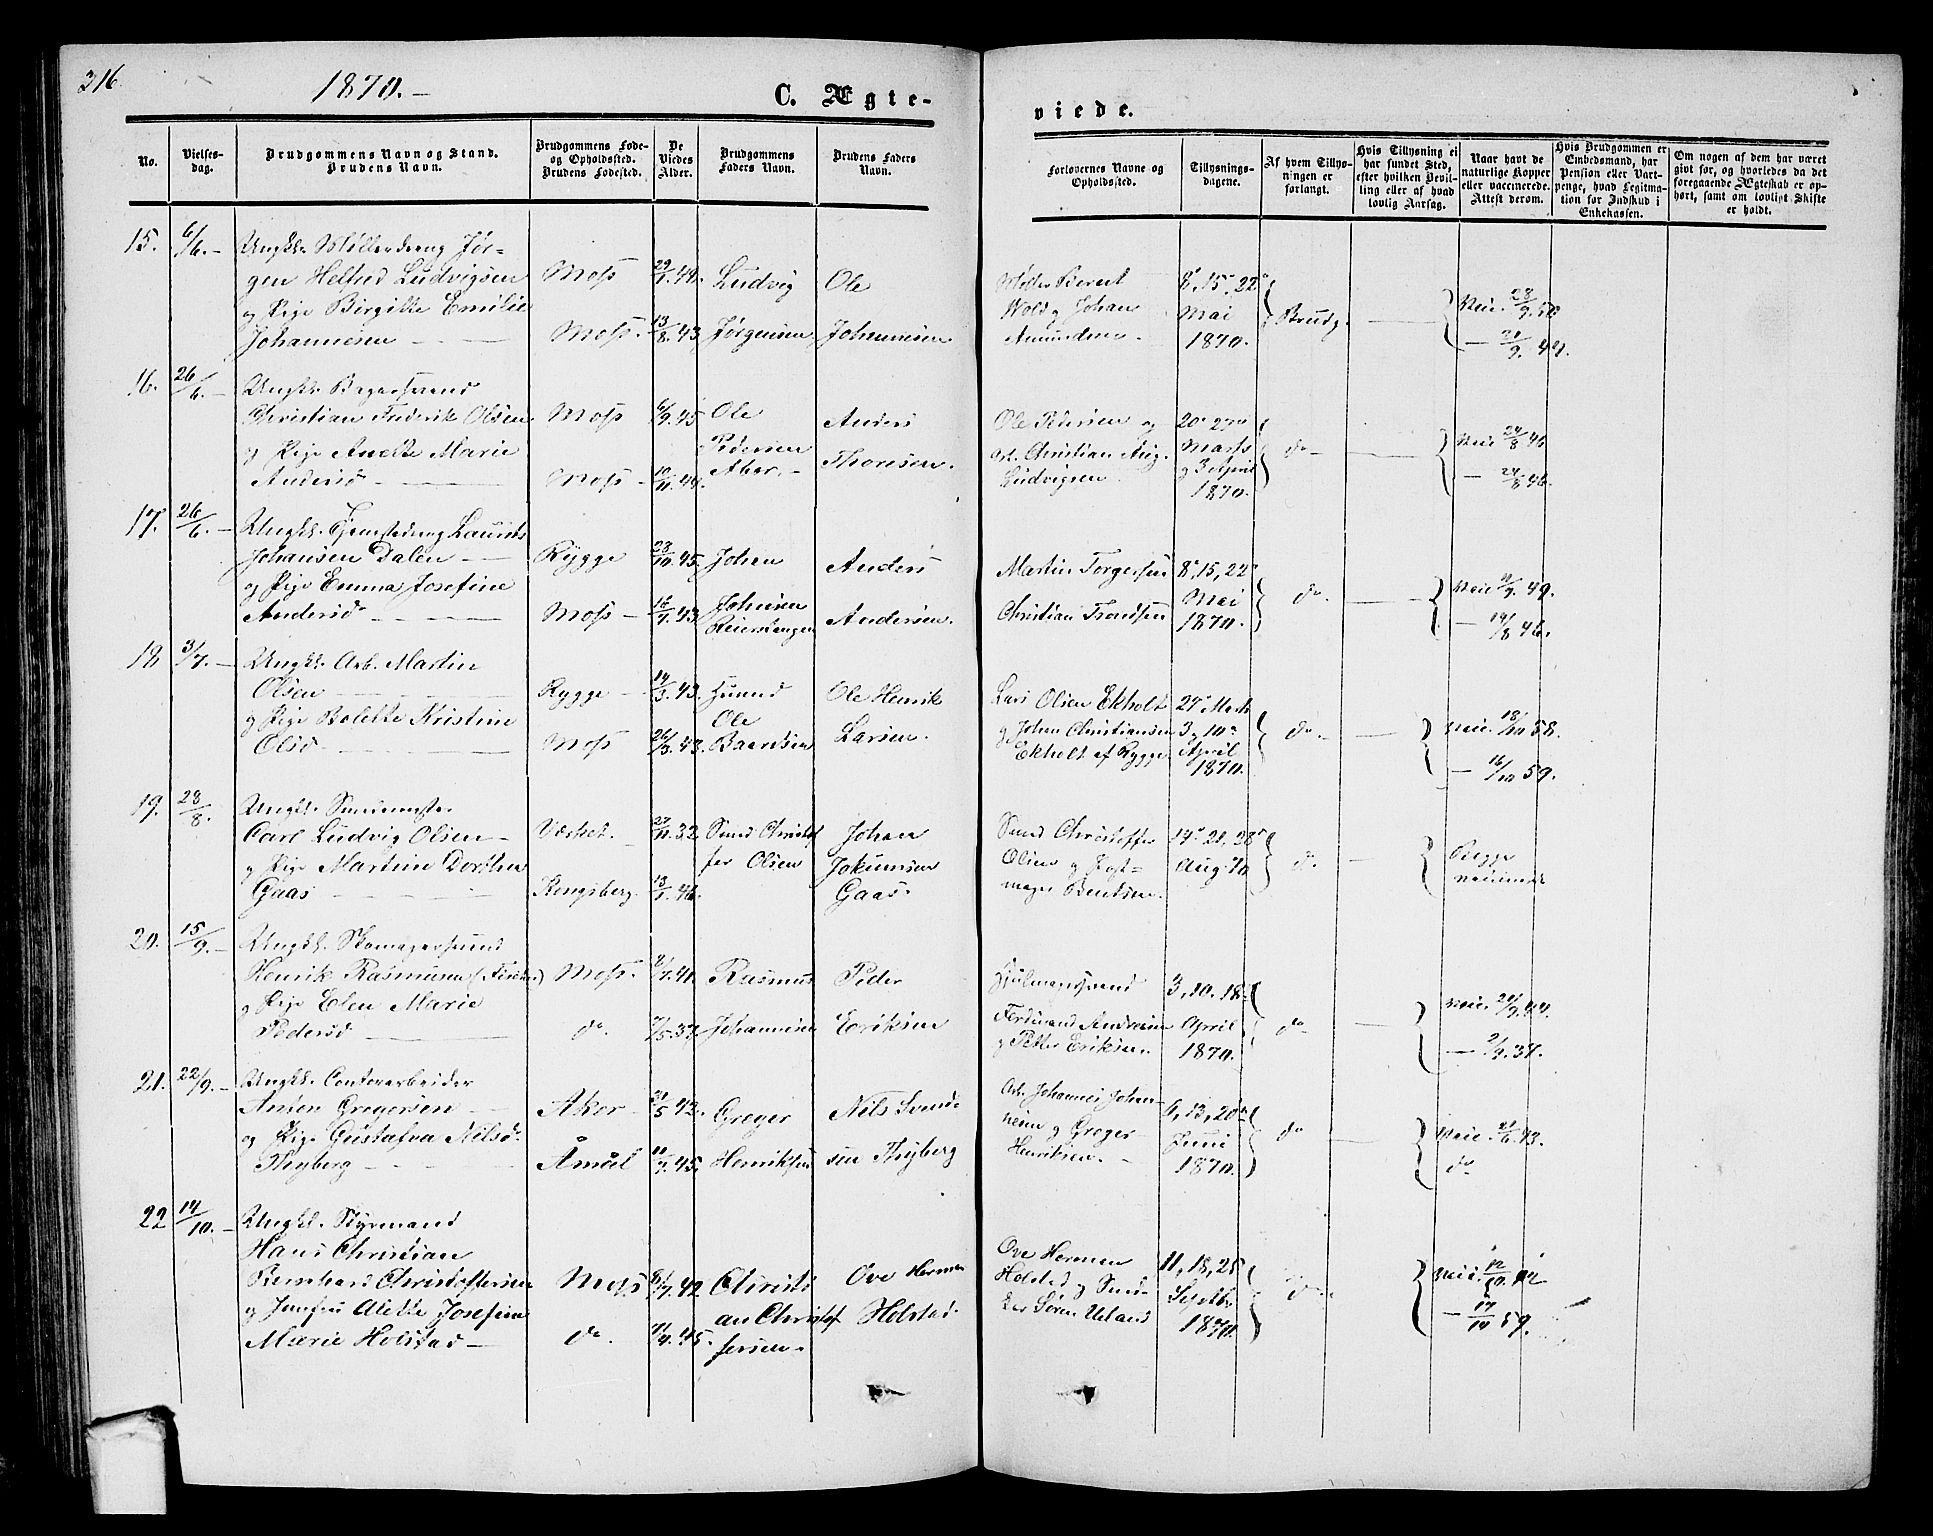 316
1870.-
C. Ægte-
viede.
No.
Vielses-
dag.
Brudgommens Navn og Stand.
Brudens Navn.
Brudgommens Føde-
og Opholdssted.
Brudens Fødested.
De
Viedes
Alder.
Brudgommens
Faders Navn.
Brudens Faders
Navn.
Forlovernes Navne og
Opholdssted.
Tillysnings-
dagene.
Af hvem Tillys-
ningen er
forlangt.
Hvis Tillysning ei
har fundet Sted,
efter hvilken Bevil-
ling eller af hvad
lovlig Aarsag.
Naar havt de
naturlige Kopper
eller vaccinerede.
Attest derom.
Hvis Brudgommen er
Embedsmand, har
Pension eller Vart-
penge, hvad Legitima-
tion for Indskud i
Enkekassen.
Om nogen af dem har været
givt før, og hvorledes da det
foregaaende Ægteskab er op-
hørt, samt om lovligt Skifte
er holdt.
15. 6/6.- Ungkl. Møllerdreng Jør-
gen Helfred Ludvigsen
og Pige Birgitte Emilie
Johannesen
Moss
Moss.
29/1.49.
13/8.43.
Ludvig
Jørgensen
Ole
Johannesen
Møller Berent
Wold og Johan
Amundsen.
8de, 15de, 22de
Mai
1870.
Brudg.
16. 26/6.- Ungkl. Bagersvend
Christian Frederik Olsen
og Pige Anette Marie
Andersd.
Moss
Moss -
6/9.45
Ole
Pedersen
Anders
Thoresen.
Ole Pedersen og
Arb. Christian Aug.
Ludvigsen
20de 27de
Marts
og 3 April
1870.
do -
Vacc. 24/8 46
- 24/8 46.
17. 26/6.- Ungkl. Tjenestedreng Laurits
Johansen Dalen
og Pige Emma Josefine
Andersd.
Rygge
Moss -
23/10.45.
16/1.43.
Johan
Johnsen
Anders
Andersen.
Martin Torgersen
Christian Trondsen
8de, 15, 22de
Mai
1870.
do.
18 3/7.- Ungkl. Arb. Martin
Olsen
og Pige Bolette Kristine
Olsd.
Rygge -
Moss
14/3.43.
26/3.43.
Ole
Baardsen
Ole Henrik
Larsen.
Lars Olsen Ekholt
og Johan Christiansen
Ekholt af Rygge.
27de Marts
3 og 10de
April
1870.
do.
Vacc. 18/10 58.
- 16/10 59.
19. 28/8.
Carl Ludvig Olsen -
og Pige Martine Dorthea
Gaas
Værket.
Kongsberg
27/11.32
13/1.46.
Christof
fer Olsen
Johan
Jokumsen
Gaas.
Christoffer
Olsen og Post-
Bentsen.
14de 21, 28de
Aug. 70
do
Begge
20. 15/9.- Ungkl. Skomagersvend
Henrik Rasmussen
og Pige Elen Marie
Pedersd.
Moss.
do.
8/7.41.
7/5.37.
Rasmus
Johannesen
Peder
Eriksen
Hjulmagersvend
Ferdinand Andresen
og Petter Eriksen.
3, 10. 18de
April
1870.
do
- 2/9.37.
21. 22/9.- Ungkl. Contorarbeider
Anton Gregersen
og Pige Gustafva Nilsd.
Thyberg
Aker
Åmål
21/5 42.
11/7.45.
Greger
Henriksen
Nils Svend
sen Thyberg
Arb. Johannes Johan-
nesen og Greger
Henriksen.
6, 13, 20de
Juni
1870.
do
Vacc. 21/6.43.
do
22 14/10.- Ungkl. Styrmand
Hans Christian
Bernhard Christoffersen
og Jomfru Alette Josefine
Marie Holstad
Moss
do.
7/9.45.
Christi
an Christof
fersen.
Ove Herman
Holstad
Ove Herman
Holstad og
Søren Ueland
11, 18, 25
Septbr
1870.
do.
- 17/10 59.